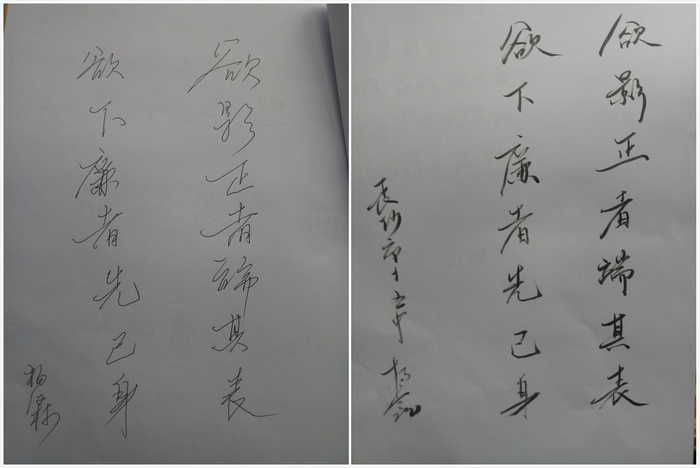 欲影正者端其表
欲下廉者先己身
欲影正者端其表
欲下廉者先己身
长沙市十五中